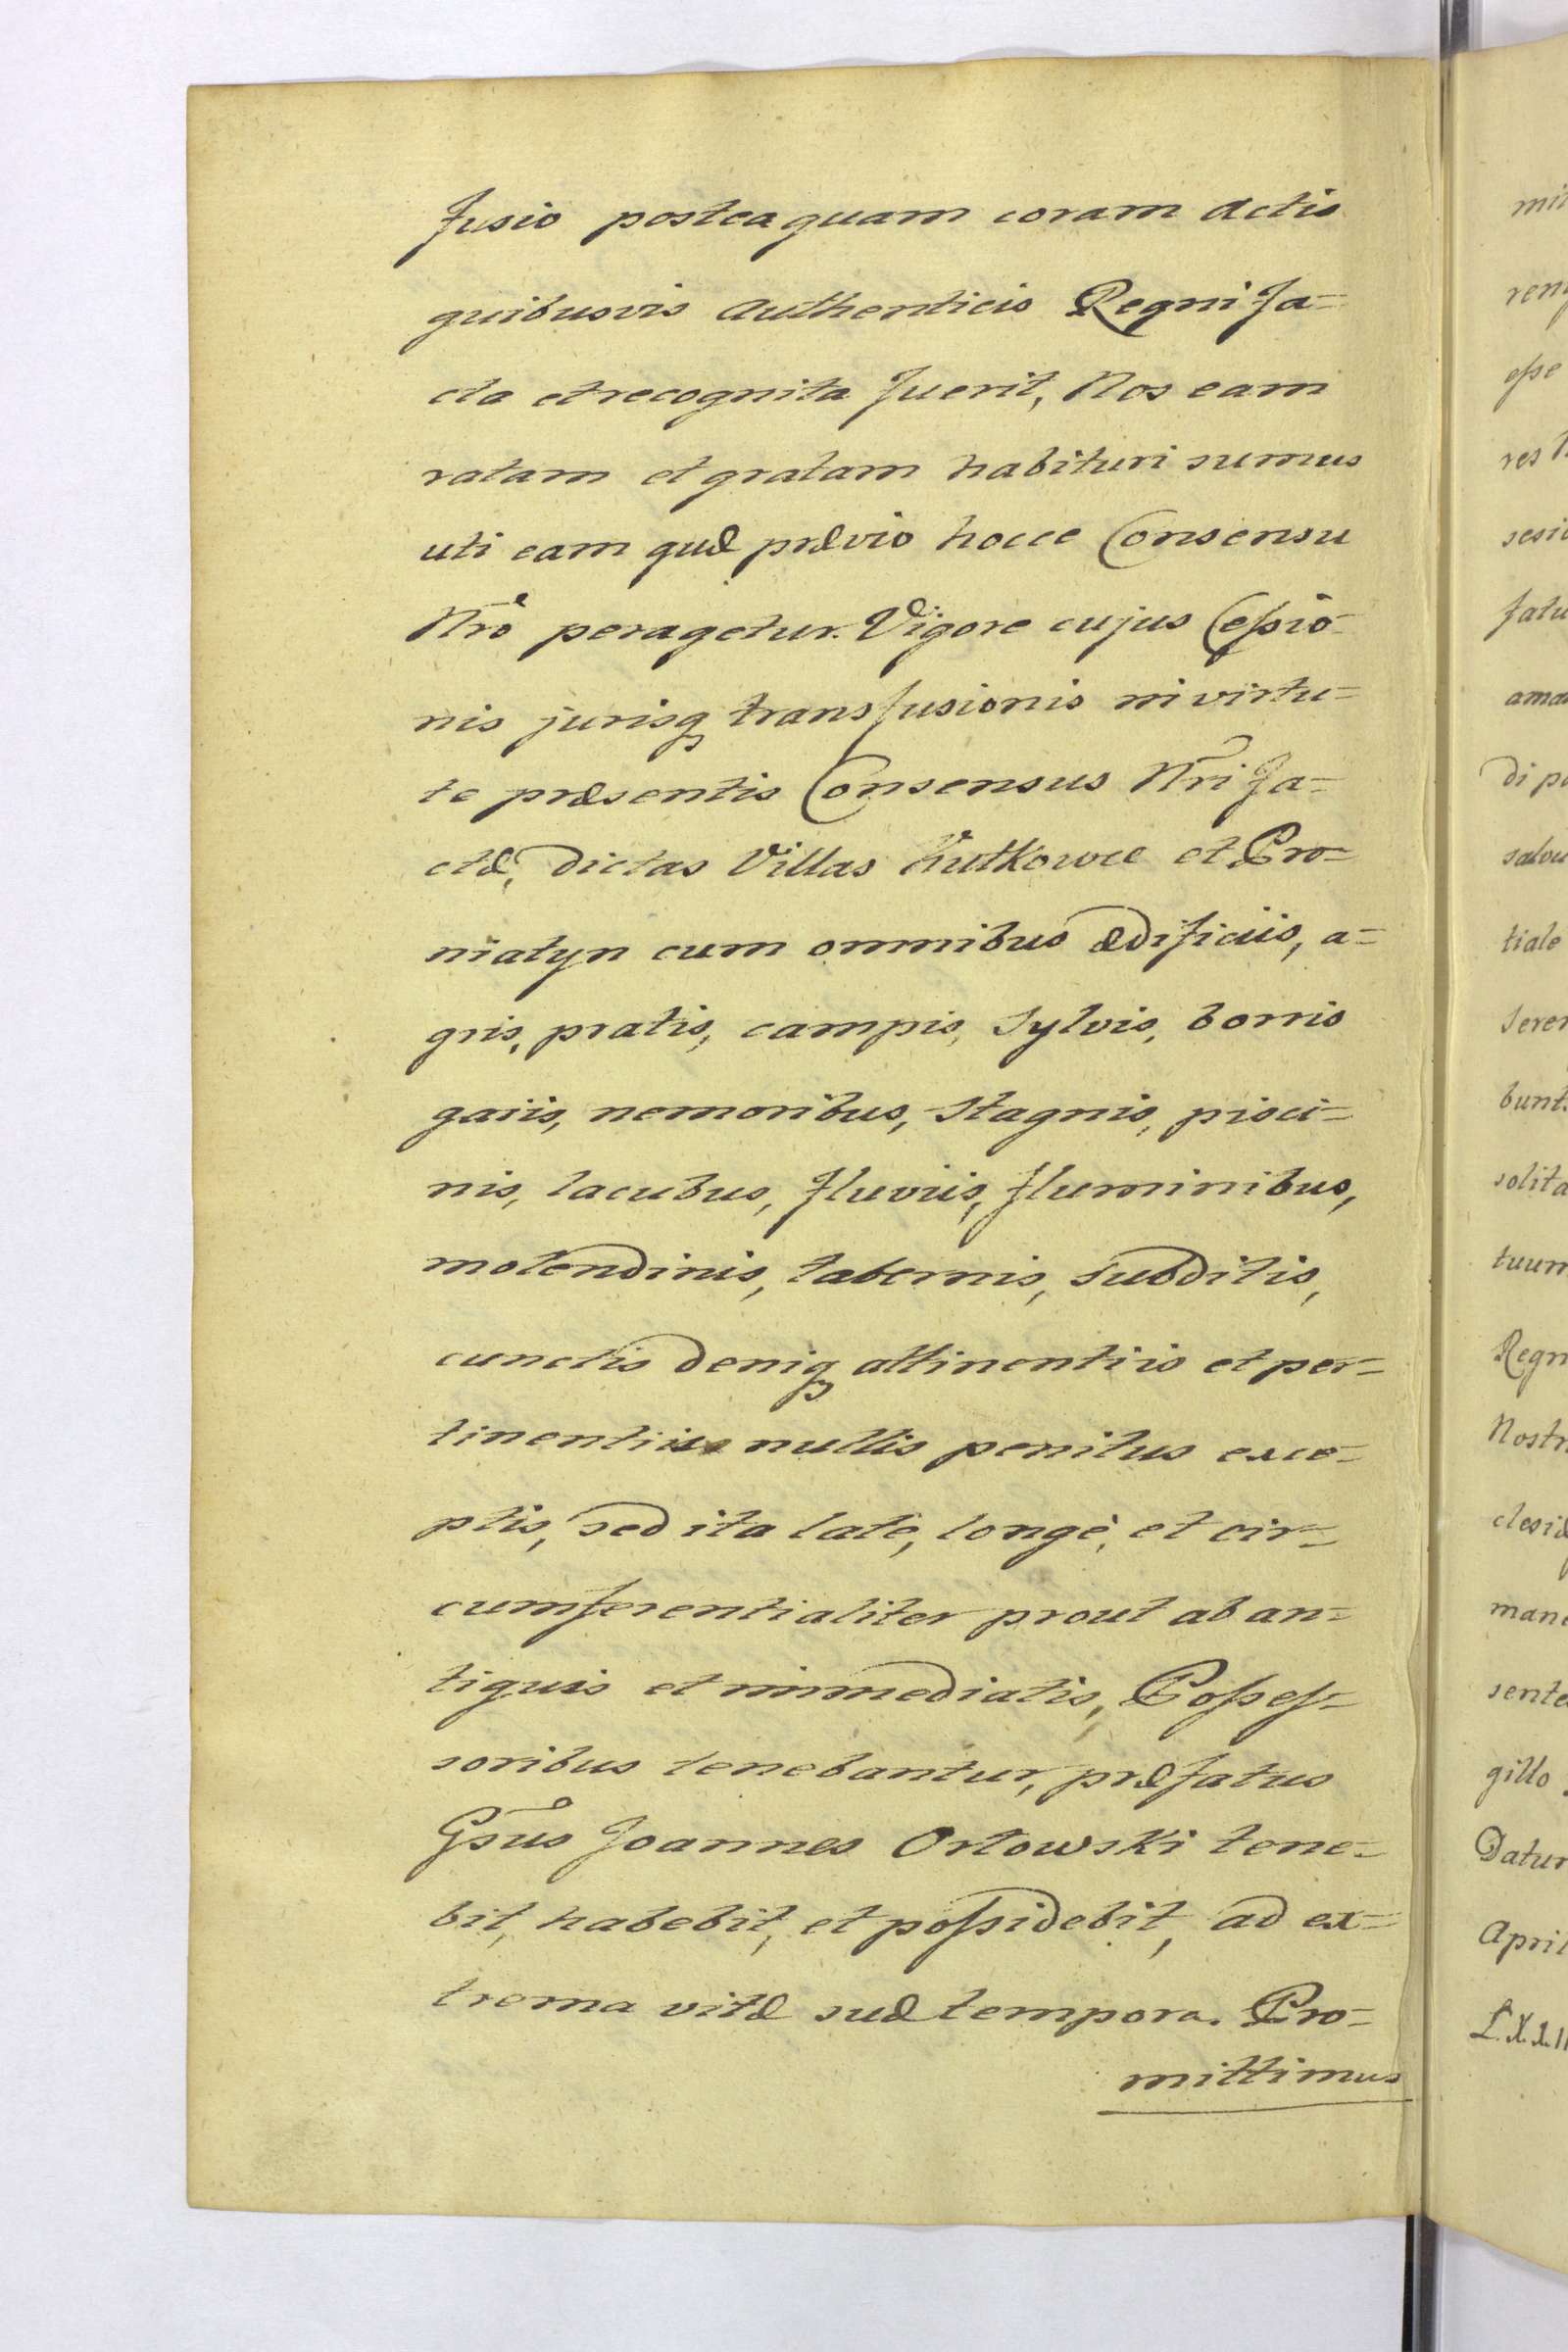 fusio posteaquam coram Actis
quibusvis Authenticis Regni fa=
cta et recognita fuerit, Nos eam
ratam et gratam habituri sumus
uti eam quæ prævio hocce Consensu
Nrõ peragetur. Vigore cujus Cessio-
nis jurisq transfusionis in virtu=
te præsentis Consensus Nri fa=
ctæ, dictas Villas Hutkowce et Pro=
niatyn cum omnibus ædificiis, a=
gris, pratis, campis, Sylvis, borris
gaiis, nemoribus, Stagnis, pisci=
nis, lacubus, fluviis, fluminibus,
molendinis, tabernis, Subditis,
cunctis deniq attinentiis et per=
tinentiis nullis penitus exce=
ptis, sed ita latè, longè, et cir=
cumferentialiter prout ab an=
tiquis et immediatis, Posses=
soribus tenebantur, præfatus
Gsũs Joannes Orłowski tene=
bit, habebit, et possidebit, ad ex=
trema vitæ suæ tempora. Pro=
mittimus